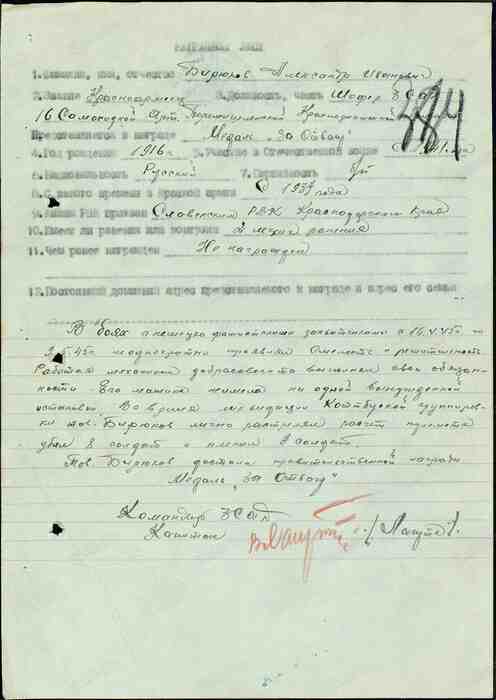 НАГРАДНОЙ ЛИСТ
1. Фамилия, имя, отчество Бирюков Александр Иванович
2. Звание Красноармеец 3. Должность, часть Шофер ЗСАД
16 Самоходной Арт. Перемышленской Краснознаменной
Представляется к награде Медаль „За Отвагу"
4. Год рождения 1916 г. 5. Участие в Отечественной войне с 1941 года
6. Национальность Русский 7. Партийность б/п
8. С какого времени в Красной армии с 1937 года
9. Каким РВК призван Славенским РВК Краснодарского Края
10. Имеет ли ранения или контузии 2 легких ранения
11. Чем ранее награжден Не награжден
12. Постоянный домашний адрес представляемого к награде и адрес его семьи
В боях с немецко фашистскими захватчиками с 16.4.45 г. по
2.5.45 г. неоднократно проявлял смелость и решительность.
Работая механиком добросовестно выполнял свои обязан-
ности. Его машина не имела ни одной вынужденной
остановки. Во время ликвидации Котбусской группиров-
ки тов. Бирюков лично расстрелял расчет пулемета
убил 8 солдат и пленил 9 солдат.
Тов. Бирюков достоин правительственной награды
Медаль „За Отвагу"
Командир ЗСАД
Капитан